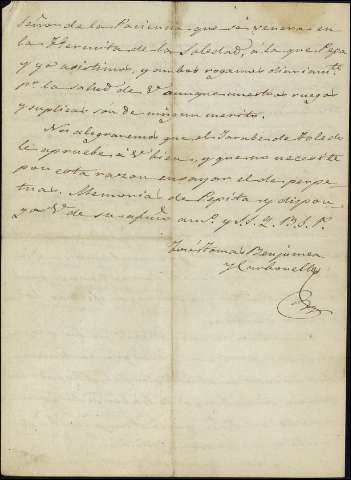 Señor de la Paciencia que se venera en
la Hermita de la Soledad, á la que Pepa
y yo asistimos, y ambos rogamos
pr. la salud de V. aunque nuestros ruegos
y suplicas son de ningun merito.
Nos alegraremos que el Jarabe de Toledo
le apruebe á V. bien, y que no necesite
por esta razon ensayar el de perpe
tuas. Memorias de Pepita y dispon
ga V. de su afmo. amo. y S. S. Q. B. S. M.
José Tomas Benjumea
y Carbonell